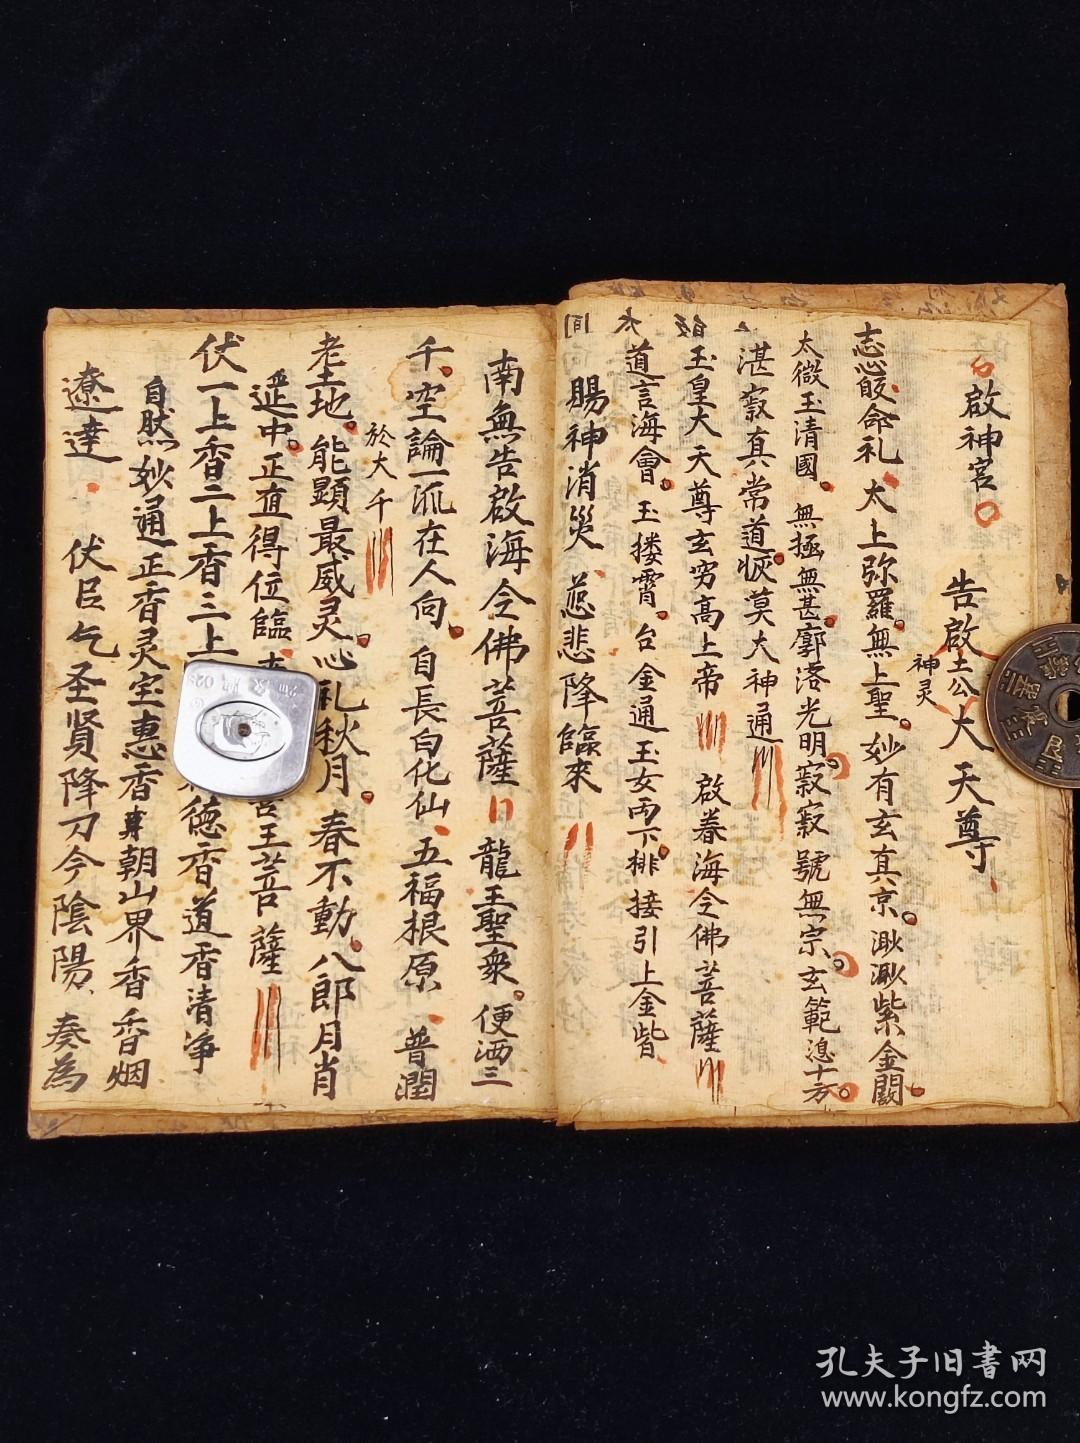 啟神宮
告啟土公大天尊
神灵
志心皈命礼太上弥羅無上聖妙有玄真京渺渺紫金闕
太微玉清國無極無甚廓落光明寂寂號無宗玄範遑十方
湛寂真常道恢莫大神通
玉皇大天尊玄穷高上帝 啟眷海令佛菩薩
道言海會玉搂霄台金通玉女両下排接引上金堦
賜神消災 慈悲降臨來
南無告啟海令佛菩薩 龍王聖衆便洒三
千空論一派在人向自長白化仙五福根原 普潤
於大千
老土地能顕最威灵心 秋月春不動八郎月肖
延中正直得位臨 王菩薩
伏一上香二上香三上 德香道香清净
自然妙通正香灵宝惠香 朝山界香香烟
遼達 伏臣乞圣賢降刀今陰陽 奏為
孔夫子旧書网
www.kongfz.com